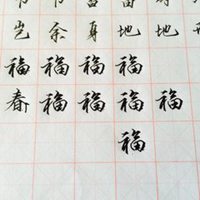 岂余身地地
福福福福
春福福福福
福